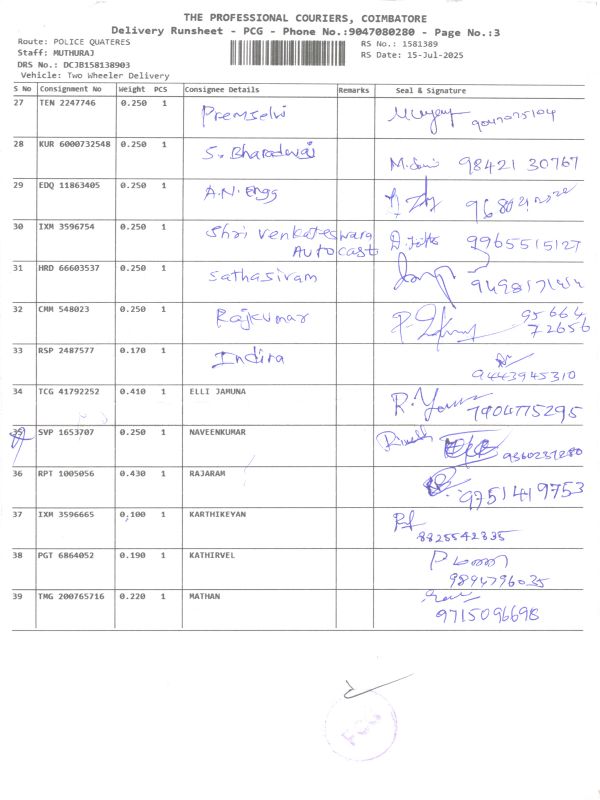 THE PROFESSIONAL COURIERS, COIMBATORE
Delivery Runsheet - PCG - Phone No.:9047080280 - Page No.:3
Route: POLICE QUATERES
Staff: MUTHURAJ
DRS No.: DCJB158138903
Vehicle: Two Wheeler Delivery
RS No.: 1581389
RS Date: 15-Jul-2025
S No Consignment No Weight PCS Consignee Details Remarks Seal & Signature
27 TEN 2247746 0.250 1 Premselvi 9047075104
28 KUR 6000732548 0.250 1 S. Bharadwaj 98421 30767
29 EDQ 11863405 0.250 1 A.N. Engg
30 IXM 3596754 0.250 1 Shri Venkateswara Autocast 9965515127
31 HRD 66603537 0.250 1 Sathasivam
32 CMM 548023 0.250 1 Rajkumar 95664 72656
33 RSP 2487577 0.170 1 Indira 9443945310
34 TCG 41792252 0.410 1 ELLI JAMUNA 7904775295
35 SVP 1653707 0.250 1 NAVEENKUMAR 9360237280
36 RPT 1005056 0.430 1 RAJARAM 9751419753
37 IXM 3596665 0.100 1 KARTHIKEYAN 8825542335
38 PGT 6864052 0.190 1 KATHIRVEL 9894796035
39 TMG 200765716 0.220 1 MATHAN 9715096698
PCG